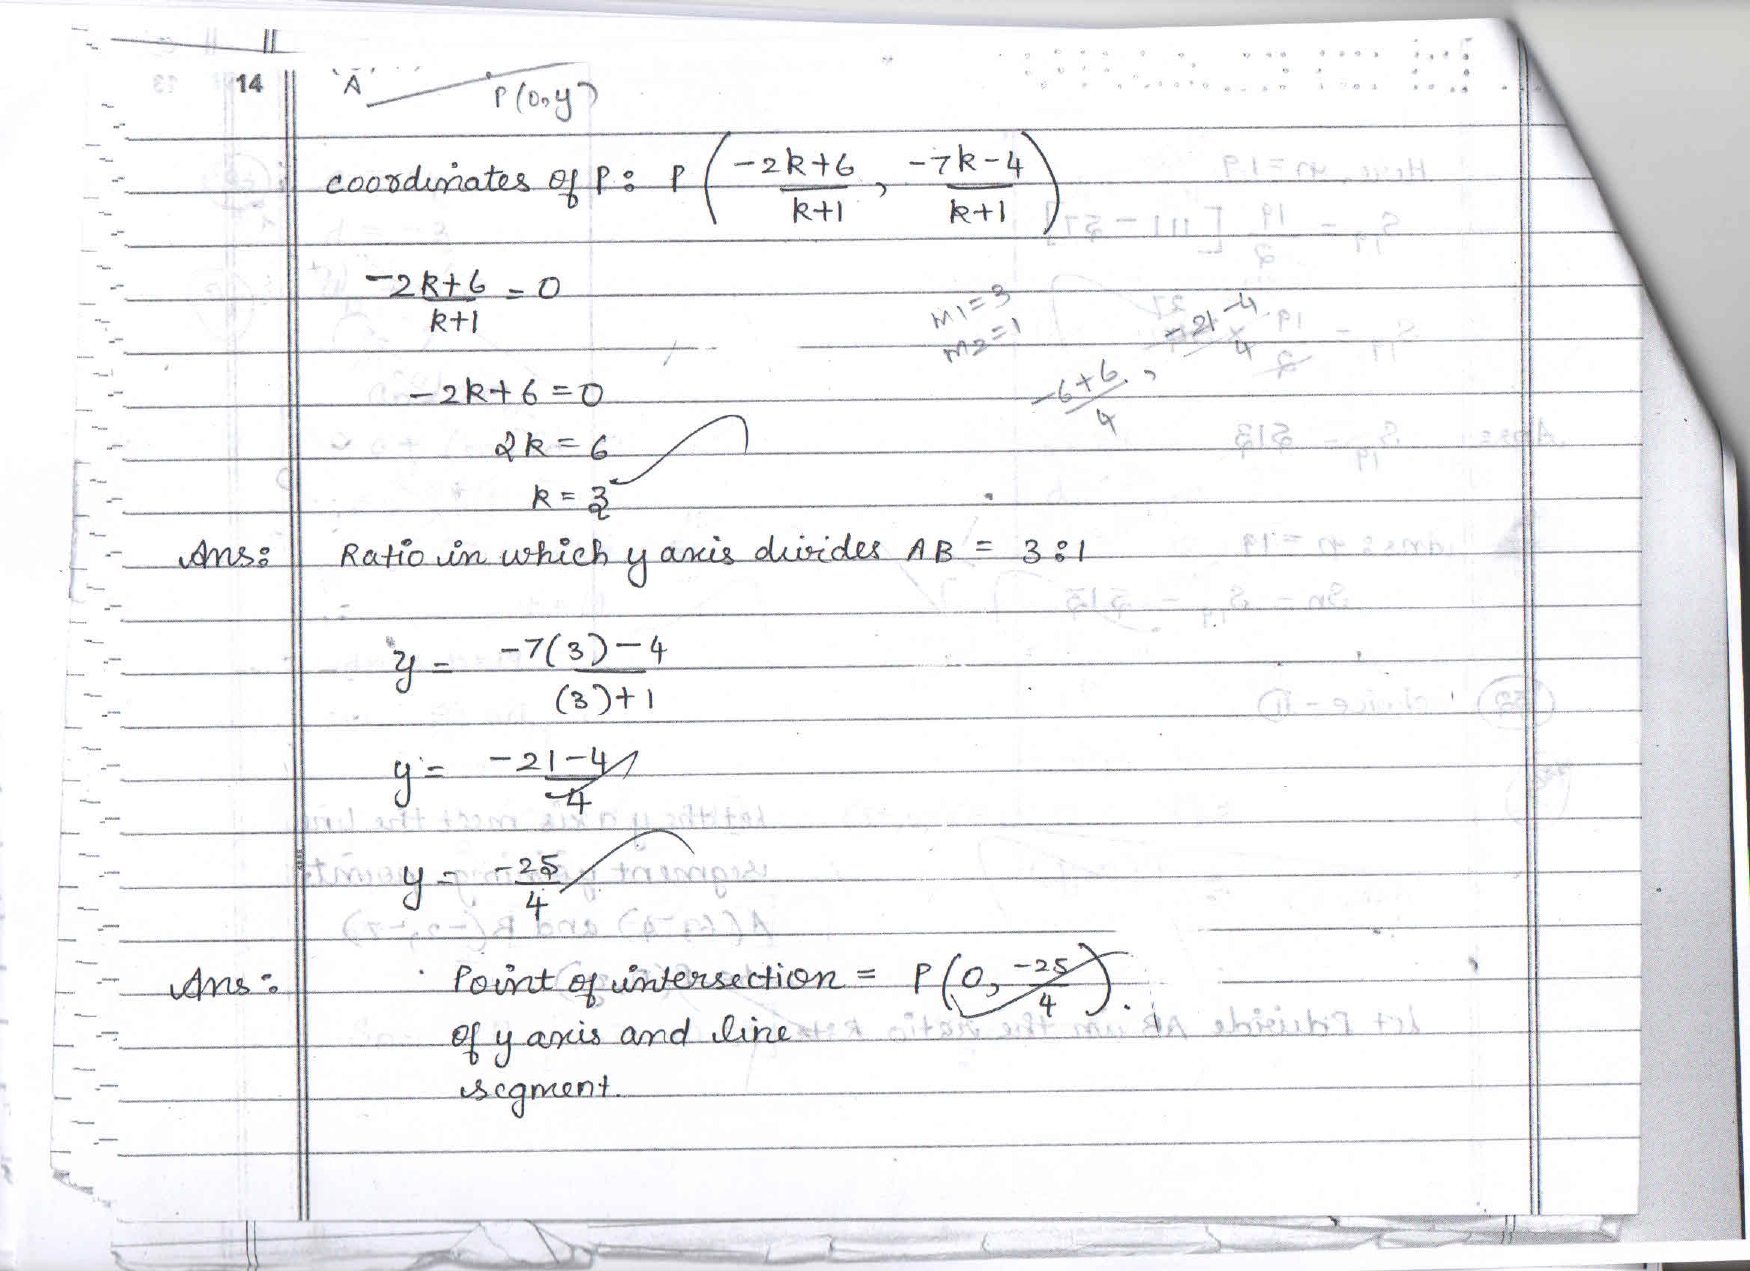 14
A
P(0,y)
coordinates of P: P (-2k+6/k+1, -7k-4/k+1)
-2k+6/k+1 = 0
m1=3
m2=1
-6+6/4, -21-4/4
-2k+6=0
2k=6
k=3
Ans: Ratio in which y axis divides AB = 3:1
y = -7(3)-4/(3)+1
y = -21-4/4
y = -25/4
Ans: Point of intersection = P(0, -25/4).
of y axis and line
segment.